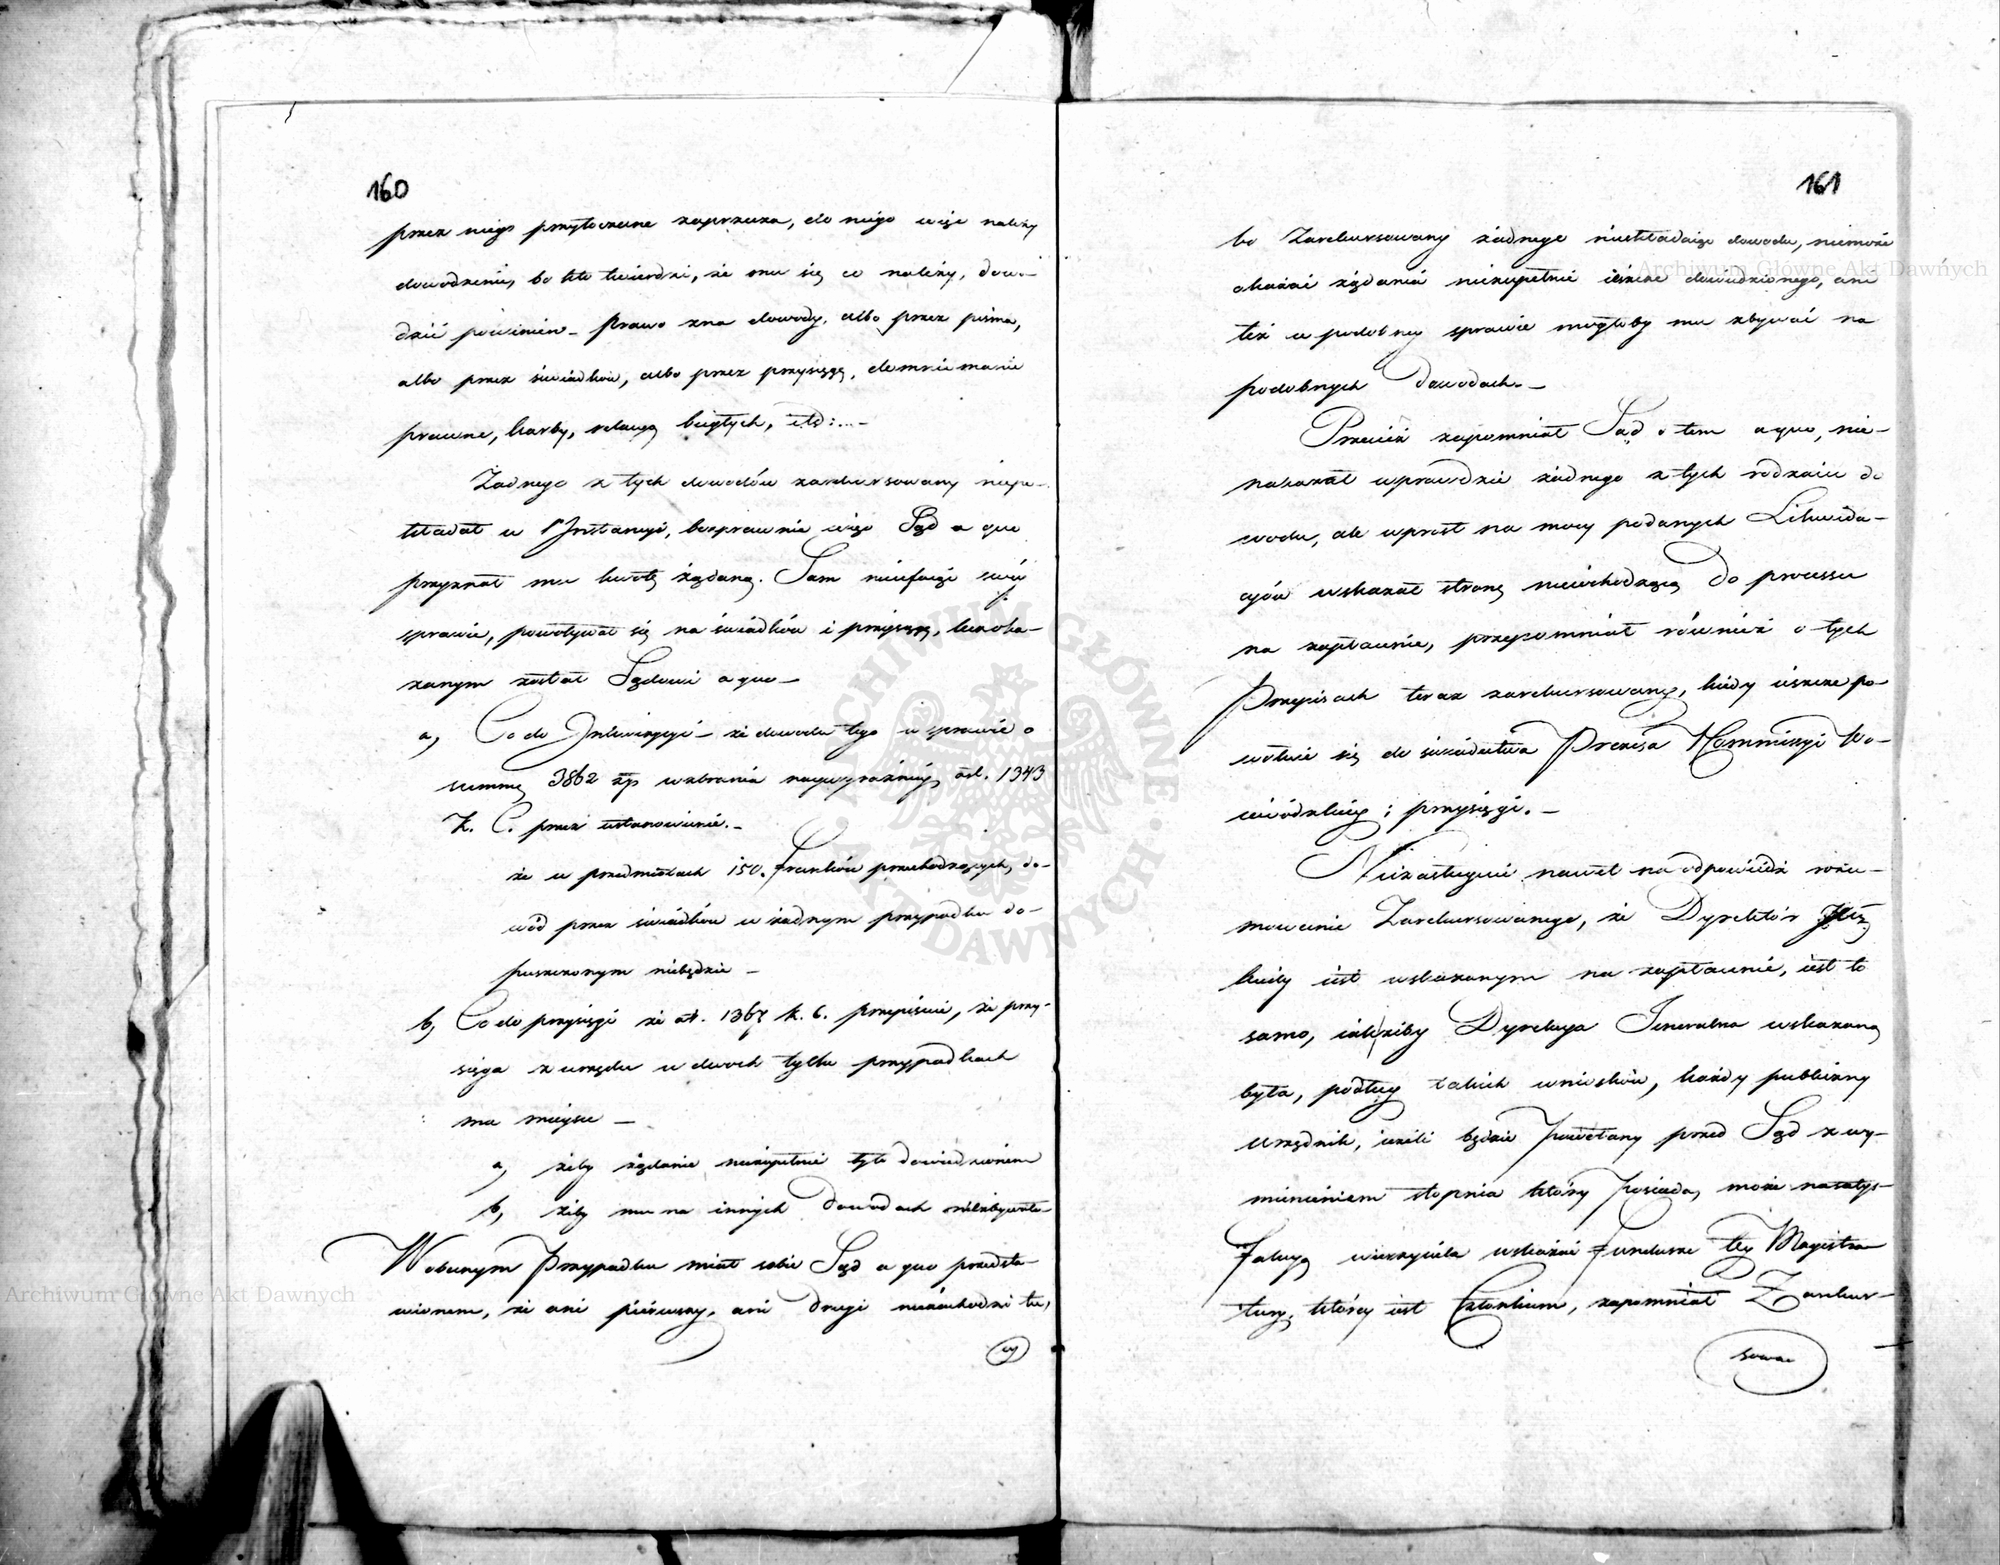 160
przez niego przytoczone zaprzecza, do niego więc należy
dowodzenie, bo kto twierdzi, że mu się co należy, dowo-
dzić powinien – Prawo zna dowody, albo przez pisma,
albo przez świadków, albo przez przysięgę, domniemanie
prawne, karby, relacyą biegłych, etd:...–
Żadnego z tych dowodów zarekursowany niepo-
kładał w 1 Instancyi, bezprawnie więc Sąd a quo
przyznał mu kwotę żądaną. Sam nieufając swéj
sprawie, powoływał się na świadków i przysięgę,
zanym został Sądowi a quo –
a, Co do – że dowodu tego w sprawie o
summę 3862 złp wzbrania naywyraźniey art. 1343
K. C. przez ustanowienie. –
że w przedmiotach 150. franków przechodzących, do-
wód przez świadków w żadnym przypadku do-
puszczonym niebędzie –
b, Co do przysięgi że art. 1367 k. C. przepisuie, że przy-
sięga z urzędu w dwóch tylko przypadkach
ma mieysce –
a, żeby żądanie niezupełnie było dowiedzionem
b, żeby mu na innych dowodach niezbywało –
W obecnym Przypadku miał sobie Sąd a quo przedsta-
wionem, że ani pierwszy, ani drugi niezachodzi tu,
161
bo Zarekursowany żadnego nieskładaiąc dowodu, niemoże
okazać żądania niezupełnie ieszcze dowiedzionego, ani
też w podobney sprawie mogłoby mu zbywać na
podobnych dowodach. –
Przecież zapomniał Sąd o tem a quo, nie-
nakazał wprawdzie żadnego z tych rodzaiu do
wodu, ale wprost na mocy podanych Likwida-
cyów wskazał stronę niewchodzącą do processu
na zapłacenie, przypomniał również o tych
Przepisach teraz zarekursowany, kiedy ieszcze po
wołuie się do świadectwa Prezesa Kommissyi Wo-
iewódzkiey i przysięgi. –
Niezasługuie nawet na odpowiedź rozu-
mowanie Zarekursowanego, że Dyrektor
kiedy iest wskazanym na zapłacenie, iest to
samo, iakżeby Dyrekcya Jeneralna wskazaną
była, podług takich wniosków, każdy publiczny
urzędnik, ieżeli będzie powołany przed Sąd z wy-
mienieniem stopnia który posiada, może na satys-
fakcyą wierzyciela wskazać fundusze tey Magistra-
tury, któréy iest Członkiem, zapomniał Zarekur-
sowan